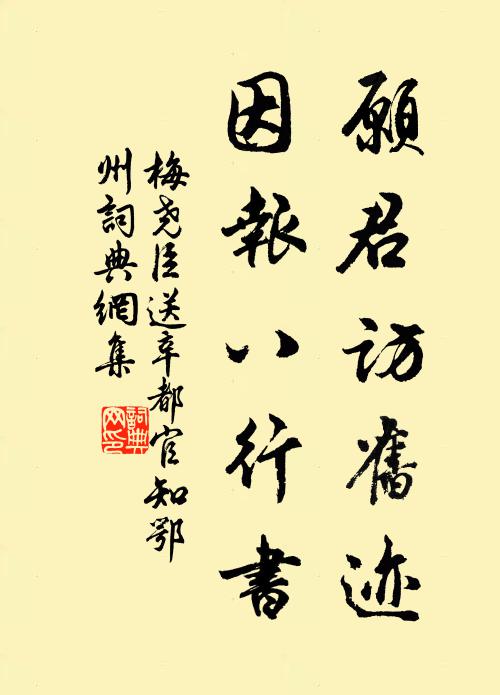 願君訪舊迹
因報八行書
梅尧臣送辛都官知鄂
州詞典網集
詞典
网印